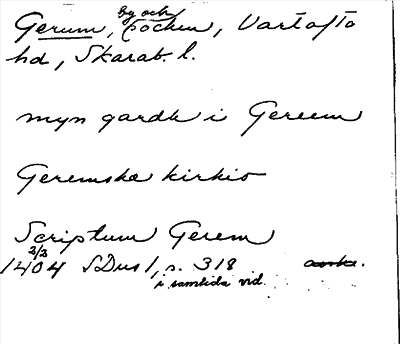 Gerum, by och socken, Vartofta
hd, Skarab. l.
myn gardh i Gereem
Geremska kirkio
Scriptum Gerem
2/3
1404 SDns 1, s. 318
i samtida vid.